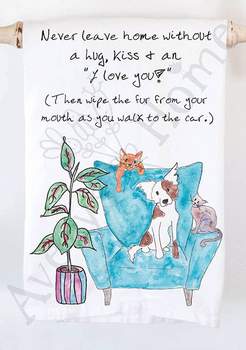 Never leave home without
a hug, kiss & an
"I love you!"
(Then wipe the fur from your
mouth as you walk to the car.)